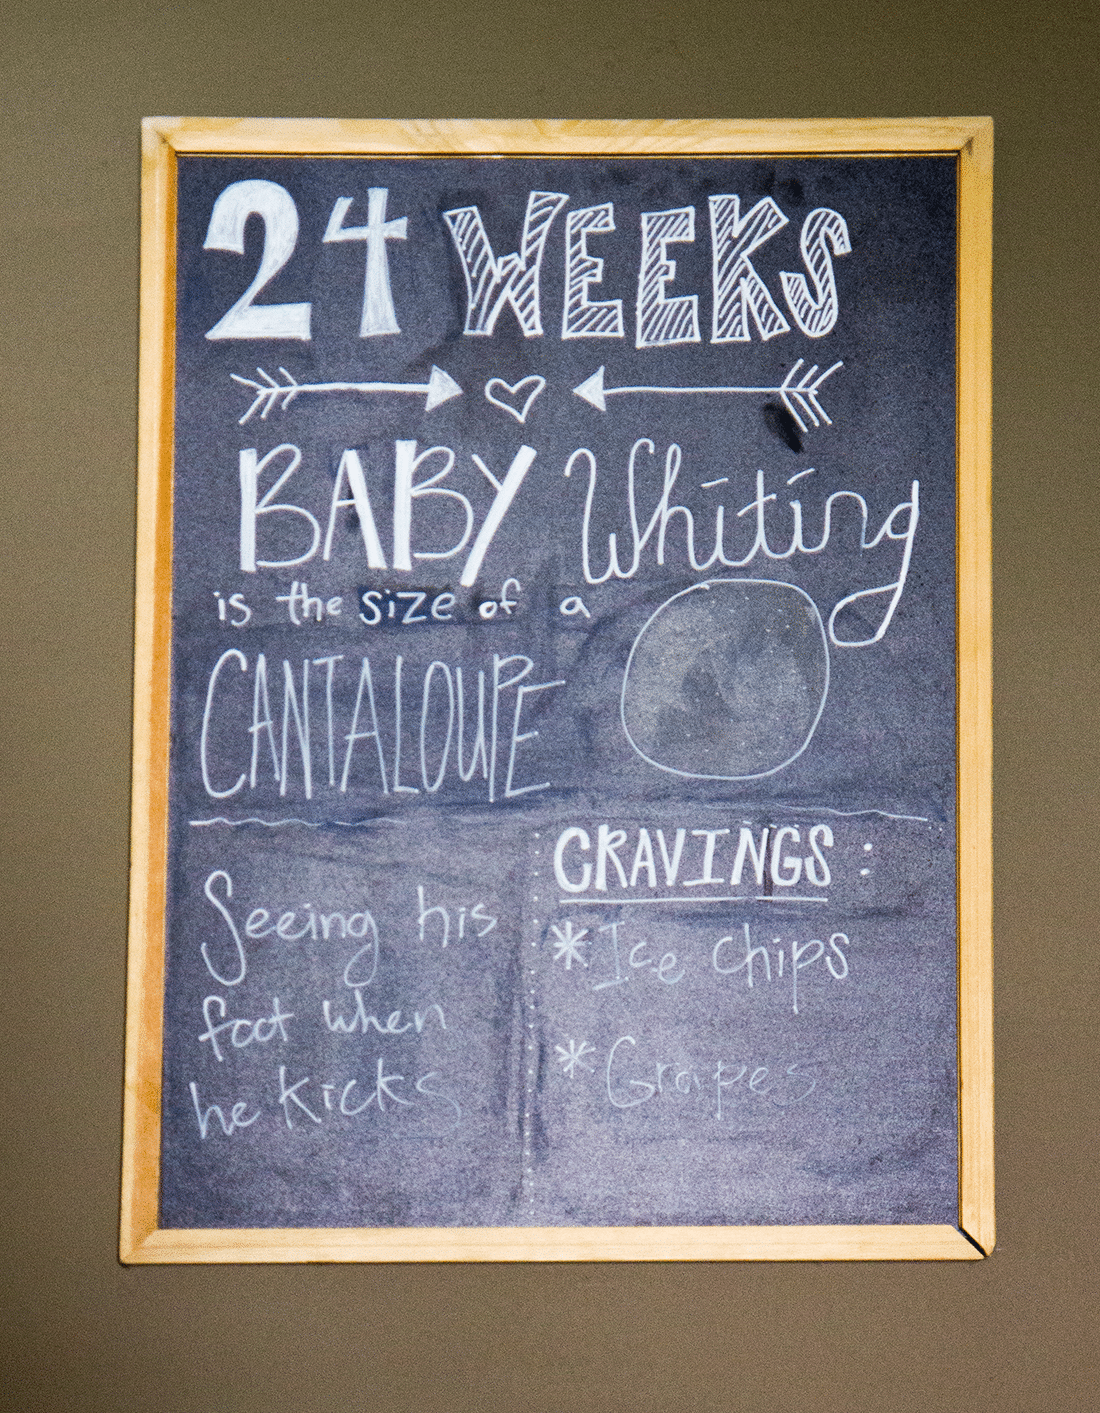 24 WEEKS
BABY Whiting
is the size of a
CANTALOUPE
Seeing his
foot when
he kicks
CRAVINGS :
* Ice chips
* Grapes